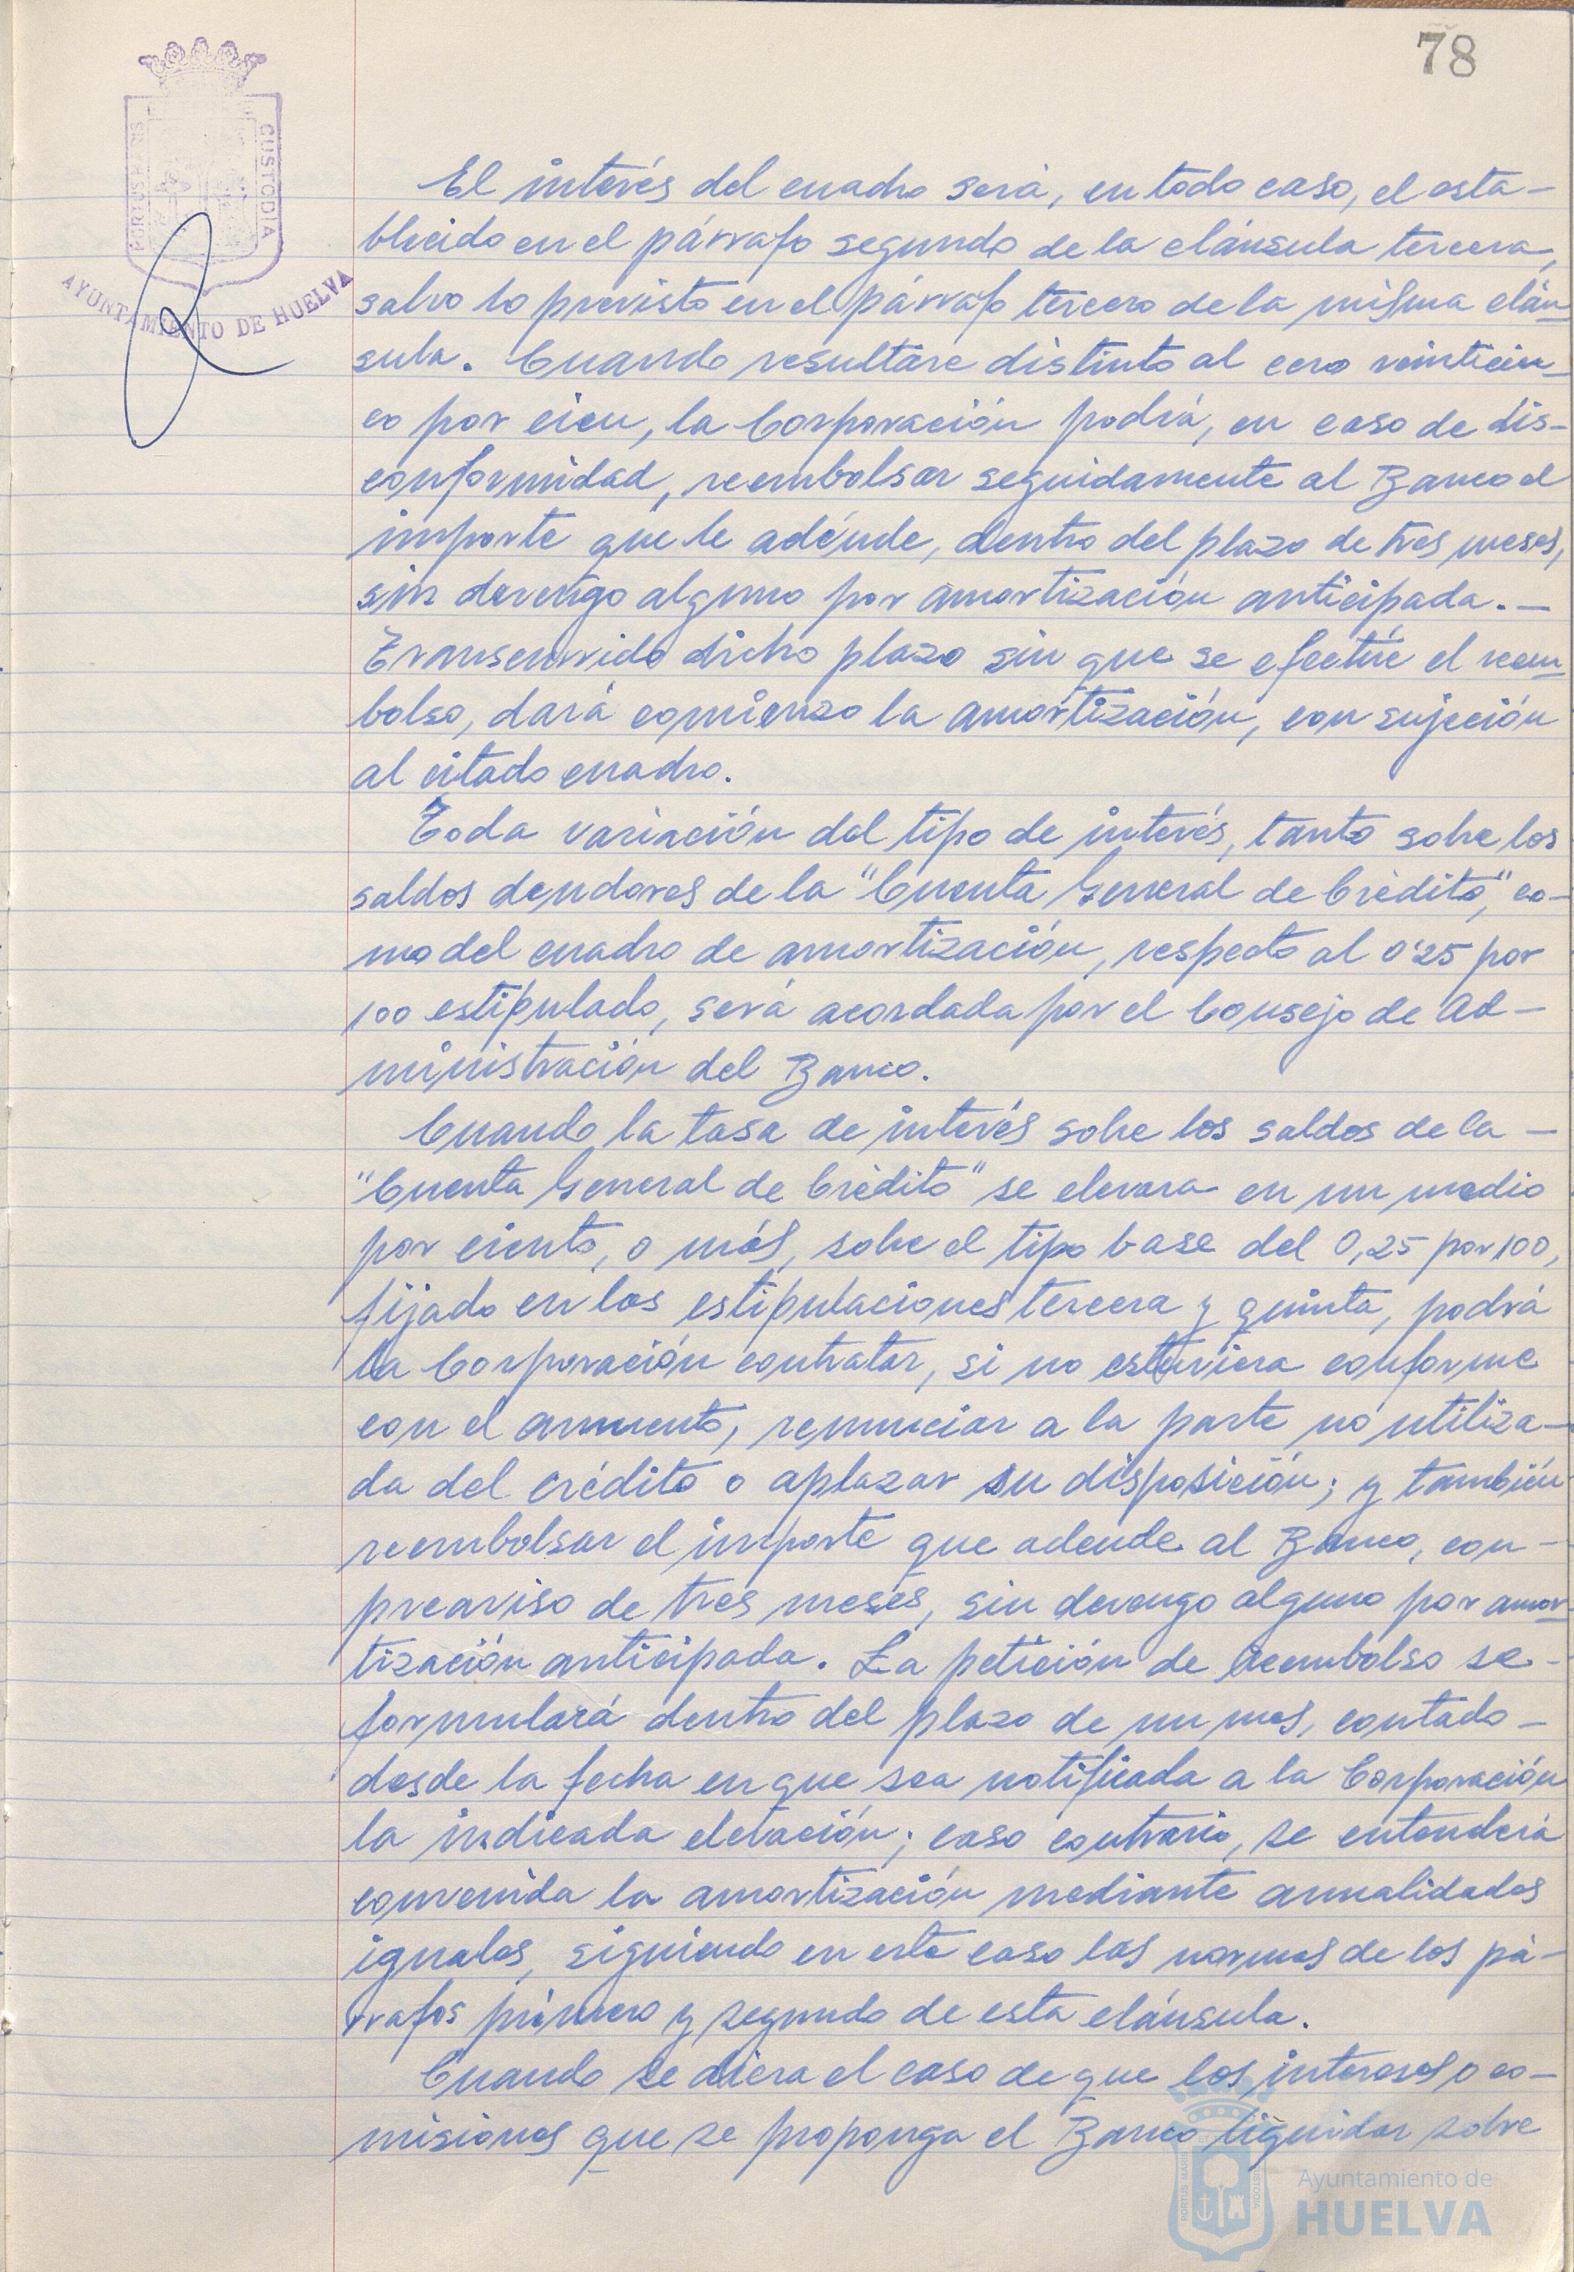 78
PORTUS MARIS
CUSTODIA
AYUNTAMIENTO DE HUELVA
El interés del cuadro será, en todo caso, el esta-
blecido en el párrafo segundo de la cláusula tercera,
salvo lo previsto en el párrafo tercero de la misma cláu
sula. Cuando resultare distinto al cero veinticin-
co por cien, la Corporación podrá, en caso de dis-
conformidad, reembolsar seguidamente al Banco el
importe que le adeude, dentro del plazo de tres meses,
sin devengo alguno por amortización anticipada.-
Transcurrido dicho plazo sin que se efectúe el reem
bolso, dará comienzo la amortización, con sujeción
al citado cuadro.
Toda variación del tipo de interés, tanto sobre los
saldos deudores de la "Cuenta General de Crédito", co-
mo del cuadro de amortización, respecto al 0'25 por
100 estipulado, será acordada por el Consejo de Ad-
ministración del Banco.
Cuando la tasa de interés sobre los saldos de la -
"Cuenta General de Crédito" se elevara en un medio
por ciento, o más, sobre el tipo base del 0,25 por 100,
fijado en las estipulaciones tercera y quinta, podrá
la Corporación contratar, si no estuviera conforme
con el aumento, renunciar a la parte no utiliza-
da del crédito o aplazar su disposición; y también
reembolsar el importe que adeude al Banco, con -
preaviso de tres meses, sin devengo alguno por amor
tización anticipada. La petición de reembolso se -
formulará dentro del plazo de un mes, contado -
desde la fecha en que sea notificada a la Corporación
la indicada elevación; caso contrario, se entenderá
convenida la amortización mediante anualidades
iguales, siguiendo en este caso las normas de los pá-
rrafos primero y segundo de esta cláusula.
Cuando se diera el caso de que los intereses o co-
misiones que se proponga el Banco liquidar sobre
Ayuntamiento de
HUELVA